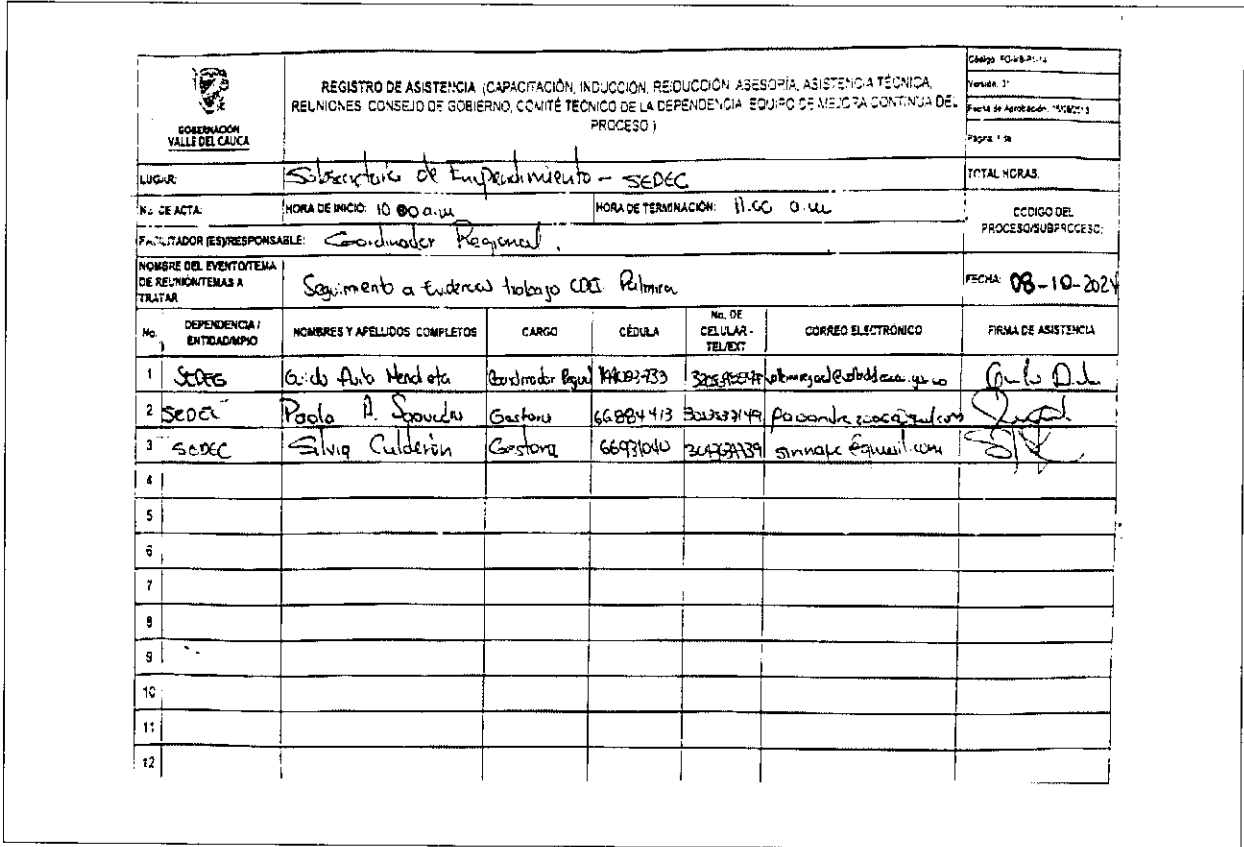 GOBERNACIÓN
VALLE DEL CAUCA
REGISTRO DE ASISTENCIA (CAPACITACIÓN, INDUCCIÓN, REIDUCCIÓN ASESORÍA, ASISTENCIA TÉCNICA,
REUNIONES, CONSEJO DE GOBIERNO, COMITÉ TÉCNICO DE LA DEPENDENCIA EQUIPO DE MEJORA CONTINUA DEL
PROCESO )
Código:
Versión:
Fecha de Aprobación:
Página:
LUGAR: Subsecretaria de Emprendimiento - SEDEC
TOTAL HORAS:
No. DE ACTA: HORA DE INICIO: 10 00 a.m HORA DE TERMINACIÓN: 11.00 a.m
CODIGO DEL
PROCESO/SUBPROCESO:
FACILITADOR (ES)/RESPONSABLE: Coordinador Regional.
NOMBRE DEL EVENTO/TEMA
DE REUNIÓN/TEMAS A
TRATAR
Seguimento a Evidencias trabajo Palmira
FECHA: 08-10-2024
No. DEPENDENCIA / ENTIDAD/MPIO NOMBRES Y APELLIDOS COMPLETOS CARGO CÉDULA No. DE CELULAR - TEL/EXT CORREO ELECTRÓNICO FIRMA DE ASISTENCIA
1 Guido Mendieta Coordinador
2 SEDEC Paola A. Saavedra Gestora 66884413
3 SEDEC Silvia Calderón Gestora 66931040
4
5
6
7
8
9
10
11
12